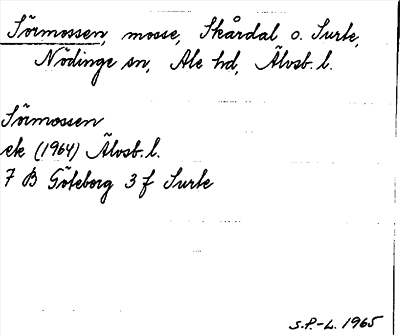 Sörmossen, mosse, Skårdal o. Surte,
Nödinge sn, Ale hd, Älvsb. l.
Sörmossen
ek (1964) Älvsb. l.
7 B Göteborg 3 f Surte
S.P.-L. 1965